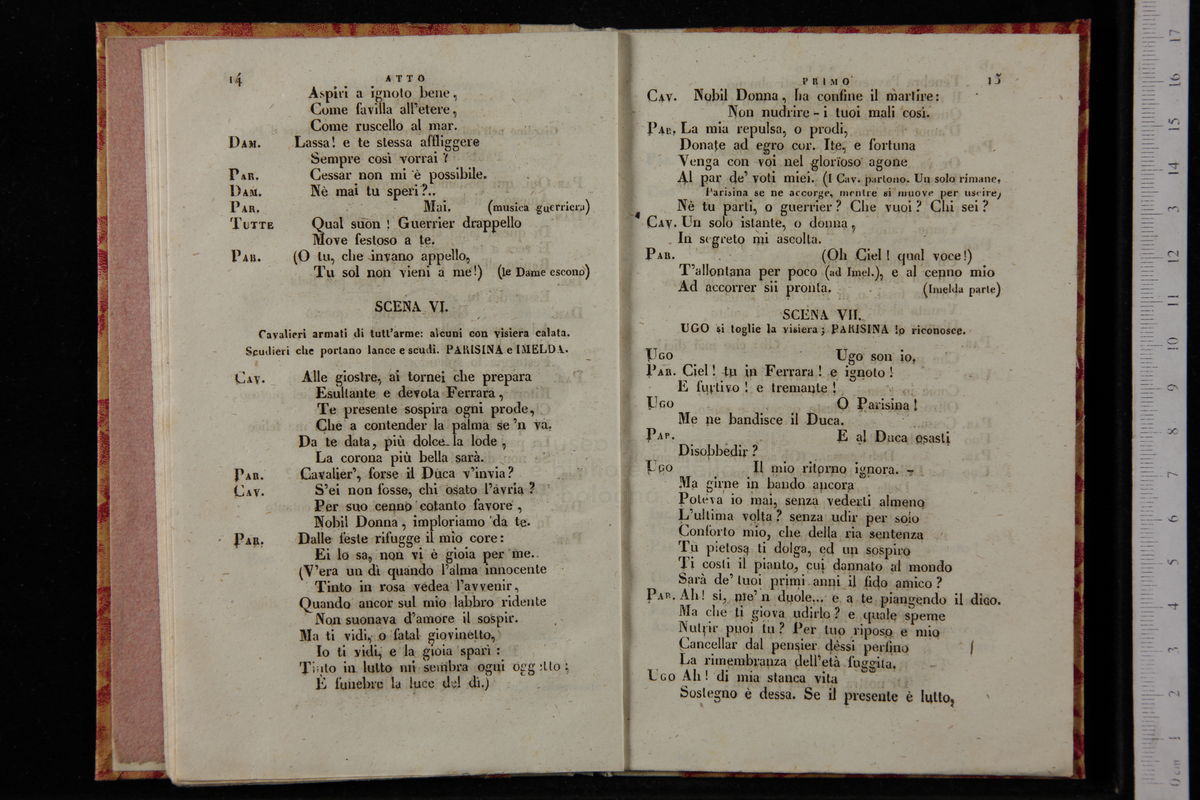 14 ATTO
Aspiri a ignoto bene,
Come favilla all'etere,
Come ruscello al mar.
DAM. Lassa! e te stessa affliggere
Sempre così vorrai?
PAR. Cessar non mi è possibile.
DAM. Nè mai tu speri?..
PAR. Mai. (musica guerriera)
TUTTE Qual suon! Guerrier drappello
Move festoso a te.
PAR. (O tu, che invano appello,
Tu sol non vieni a me!) (le Dame escono)
SCENA VI.
Cavalieri armati di tutt'arme: alcuni con visiera calata.
Scudieri che portano lance e scudi. PARISINA e IMELDA.
CAV. Alle giostre, ai tornei che prepara
Esultante e devota Ferrara,
Te presente sospira ogni prode,
Che a contender la palma se 'n va.
Da te data, più dolce la lode,
La corona più bella sarà.
PAR. Cavalier', forse il Duca v'invia?
CAV. S'ei non fosse, chi osato l'avria?
Per suo cenno cotanto favore,
Nobil Donna, imploriamo da te.
PAR. Dalle feste rifugge il mio core:
Ei lo sa, non vi è gioia per me.
(V'era un dì quando l'alma innocente
Tinto in rosa vedea l'avvenir,
Quando ancor sul mio labbro ridente
Non suonava d'amore il sospir.
Ma ti vidi, o fatal giovinetto,
Io ti vidi, e la gioia sparì:
Tinto in lutto mi sembra ogni oggetto;
È funebre la luce del dì.)
PRIMO 15
CAV. Nobil Donna, ha confine il martire:
Non nudrire - i tuoi mali così.
PAR. La mia repulsa, o prodi,
Donate ad egro cor. Ite, e fortuna
Venga con voi nel glorioso agone
Al par de' voti miei. (I Cav. partono. Un solo rimane,
Parisina se ne accorge, mentre si muove per uscire)
Nè tu parti, o guerrier? Che vuoi? Chi sei?
CAV. Un solo istante, o donna,
In segreto mi ascolta.
PAR. (Oh Ciel! qual voce!)
T'allontana per poco (ad Imel.), e al cenno mio
Ad accorrer sii pronta. (Imelda parte)
SCENA VII.
UGO si toglie la visiera; PARISINA lo riconosce.
UGO Ugo son io,
PAR. Ciel! tu in Ferrara! e ignoto!
E furtivo! e tremante!
UGO O Parisina!
Me ne bandisce il Duca.
PAR. E al Duca osasti
Disobbedir?
UGO Il mio ritorno ignora. -
Ma girne in bando ancora
Poteva io mai, senza vederti almeno
L'ultima volta? senza udir per solo
Conforto mio, che della ria sentenza
Tu pietosa ti dolga, ed un sospiro
Ti costi il pianto, cui dannato al mondo
Sarà de' tuoi primi anni il fido amico?
PAR. Ah! sì, me 'n duole... e a te piangendo il dico.
Ma che ti giova udirlo? e quale speme
Nutrir puoi tu? Per tuo riposo e mio
Cancellar dal pensier dèssi perfino
La rimembranza dell'età fuggita.
UGO Ah! di mia stanca vita
Sostegno è dessa. Se il presente è lutto,